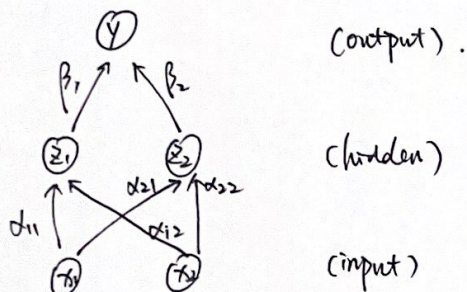 y (output).
β₁ β₂
z₁ z₂ (hidden)
α₁₁ α₂₁ α₁₂ α₂₂
x₁ x₂ (input)